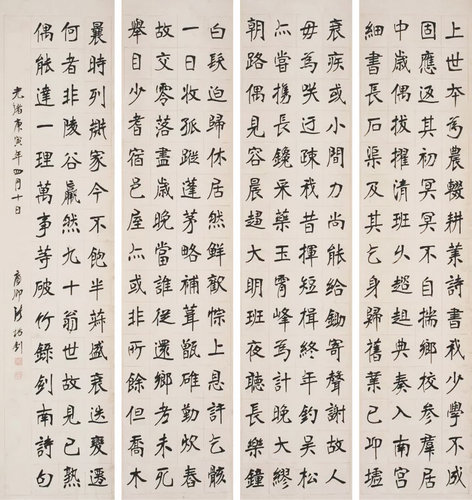 上世本為農輟耕業詩書我少學不成
固應返其初冥冥不自揣鄉校參羣居
中歲偶拔擢清班乆超超典奏入南宮
細書長石渠及其乞身歸舊業已邱墟
衰疾或小瘳力尚能給鋤寄聲謝故人
毋為咲迂疎我昔揮短楫終年釣吳松
亦嘗攜長鑱采藥玉霄峰焉知晚大繆
朝路偶見容晨趨大明班夜聽長樂鐘
白髮迫歸休居然鮮歡悰上恩許乞骸
一日收孤蹤蓬茅略補葺甑碓勤炊舂
故交零落盡歲晚當誰從還鄉者未死
舉目少耆宿邑屋亦或非所餘但喬木
曩時列鼎家今不飽半菽盛衰迭變遷
何者非陵谷羸然九十翁世故見已熟
偶能達一理萬事等破竹錄劍南詩句
光緒庚寅年四月十日
廉卿張裕釗